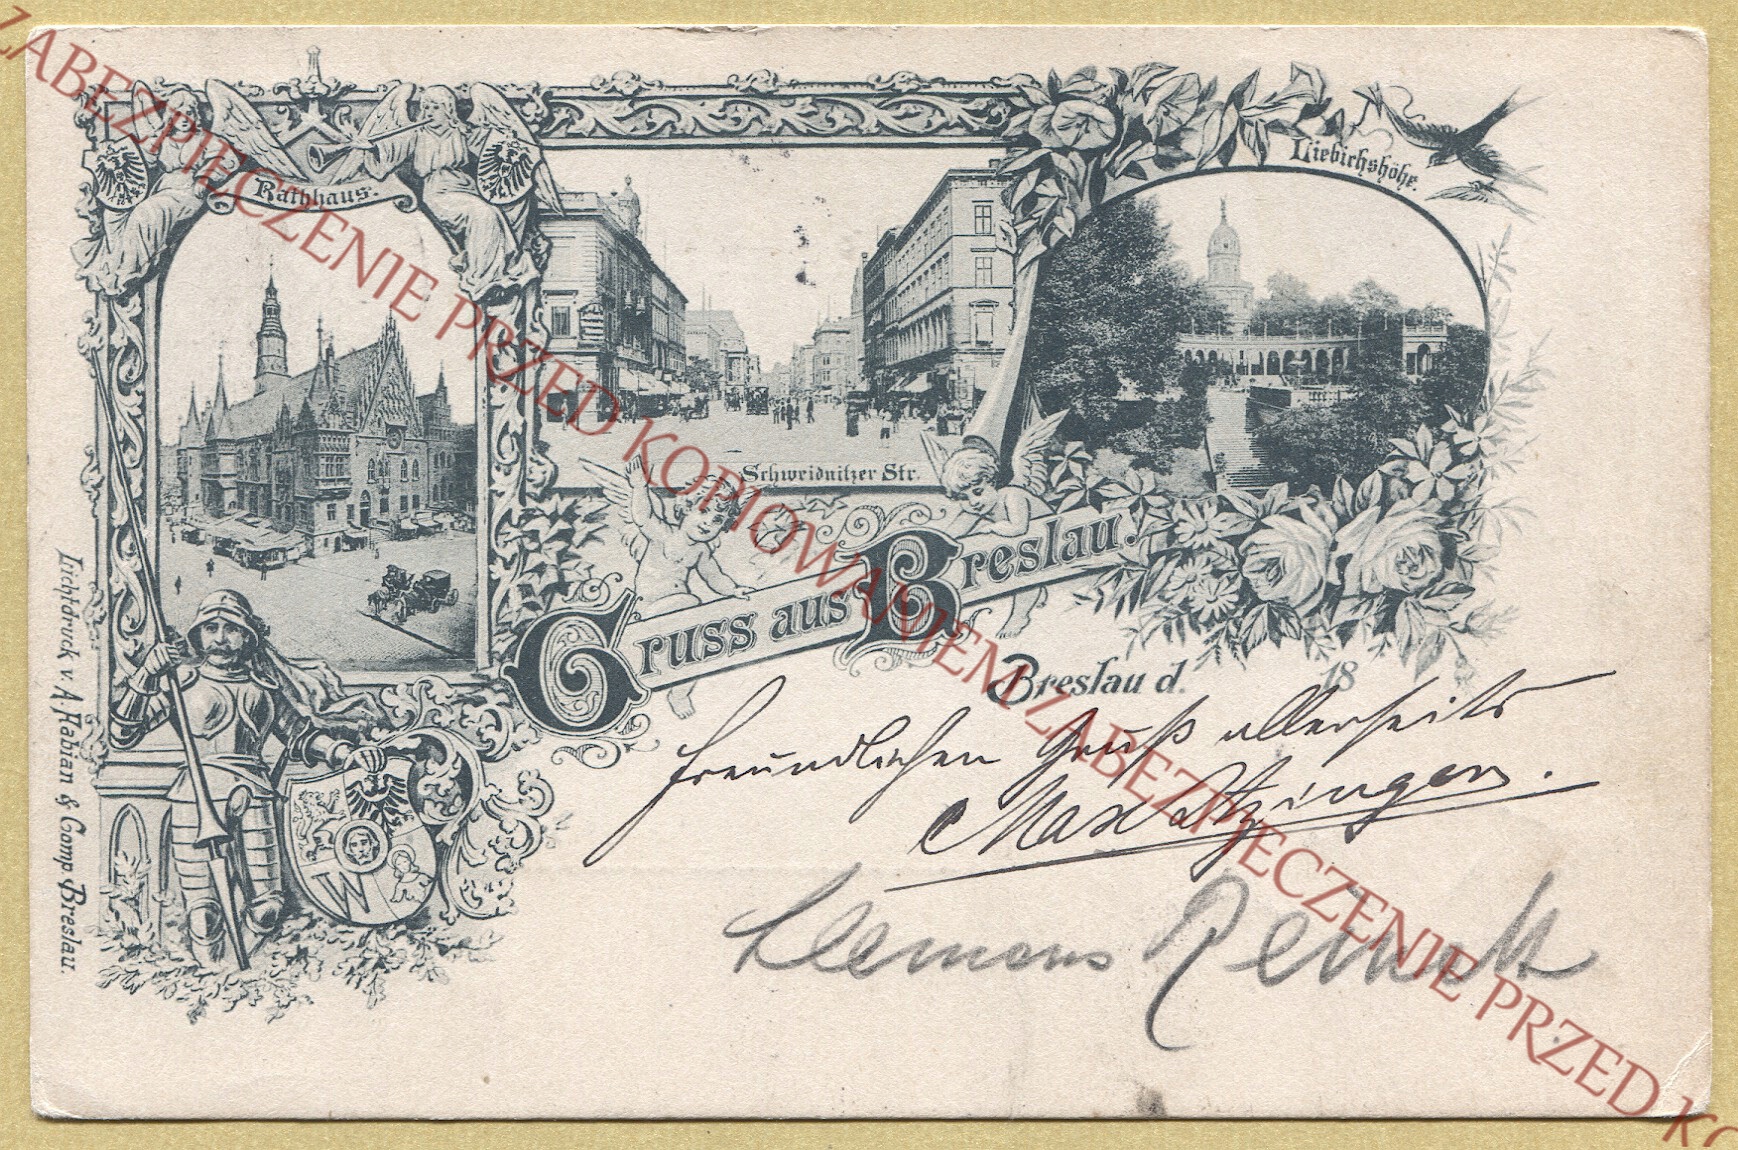 ZABEZPIECZENIE PRZED KOPIOWANIEM ZABEZPIECZENIE PRZED KO
Rathhaus.
Liebichshöhe.
Schweidnitzer Str.
Gruss aus Breslau.
Breslau d. 18
freundlichen Gruß allerseits
Max
Clemens
Lichtdruck v. A. Fabian & Comp. Breslau.